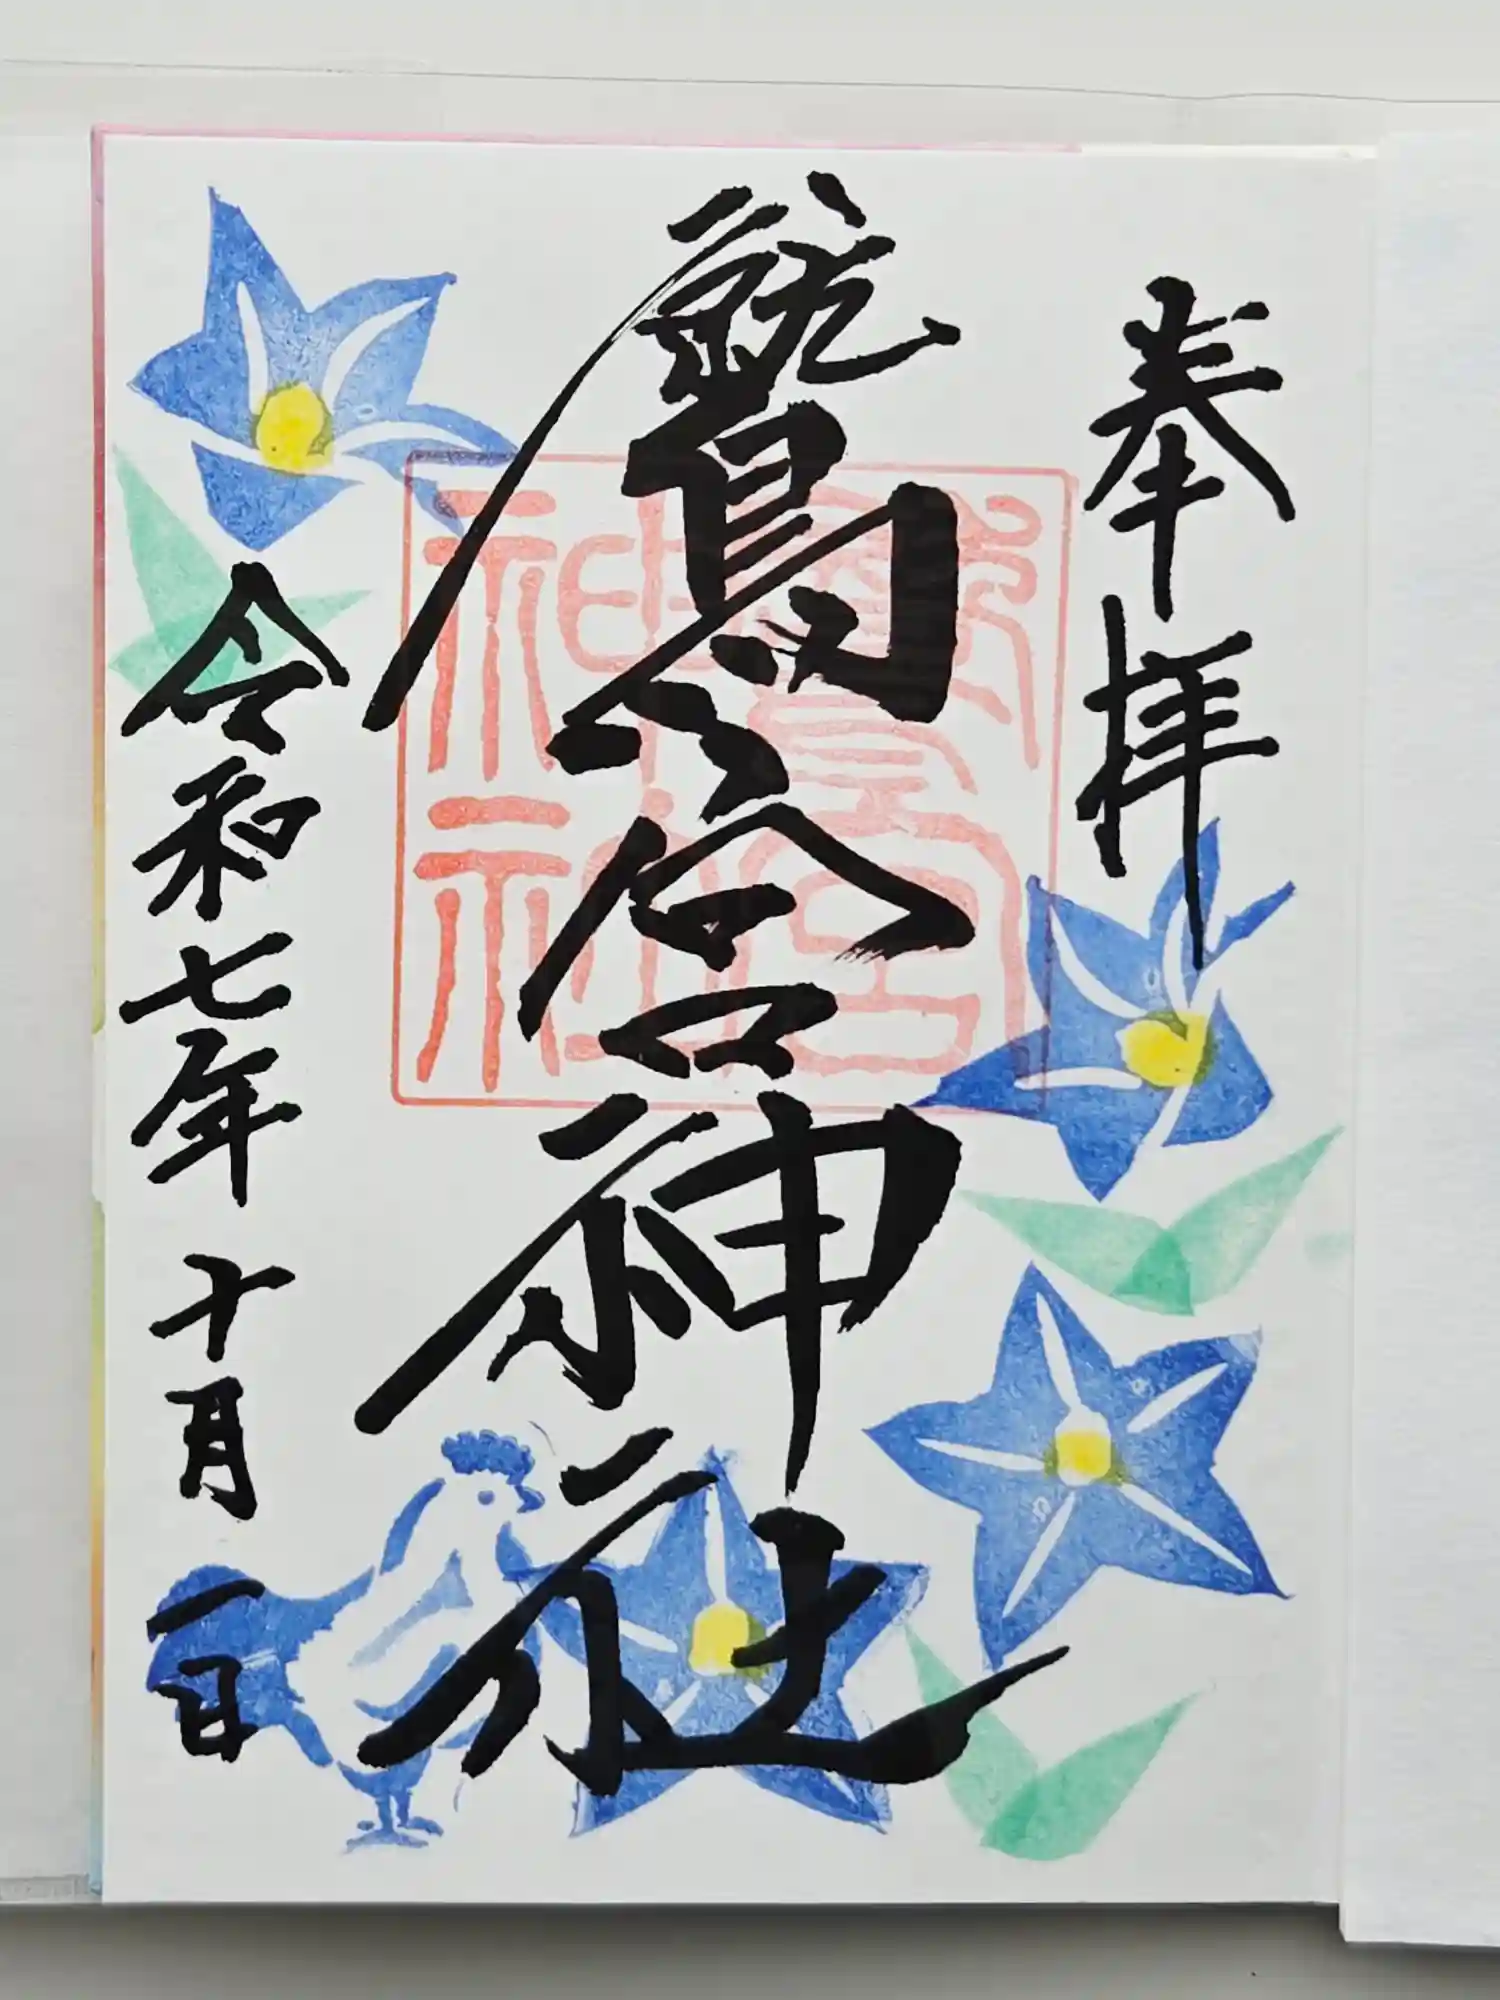 奉拝
鷲宮神社
令和七年 十月 一日
鷲宮
神社